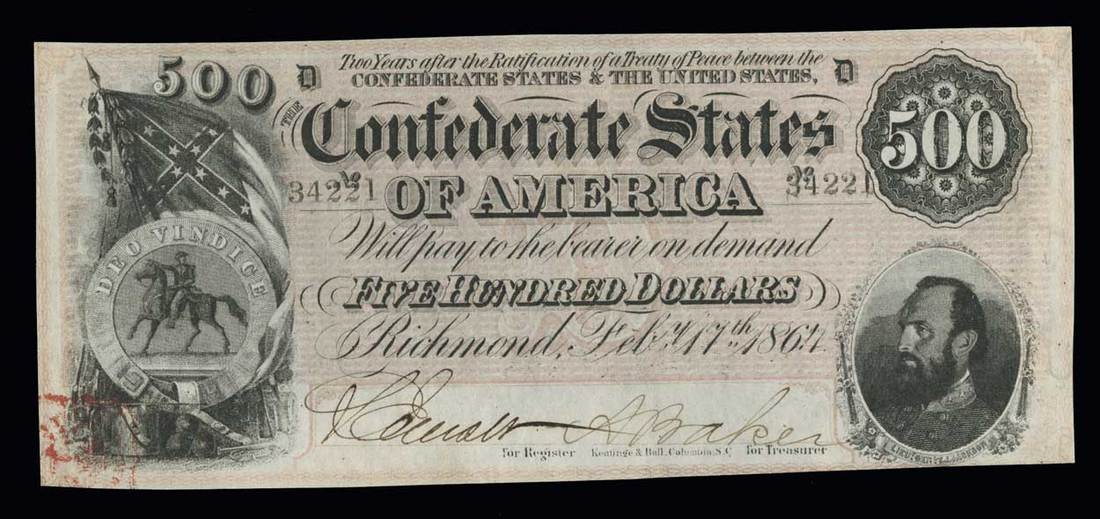 500
D
Two Years after the Ratification of a Treaty of Peace between the
CONFEDERATE STATES & THE UNITED STATES,
D
500
THE
Confederate States
No 34221
No 34221
OF AMERICA
Will pay to the bearer on demand
FIVE HUNDRED DOLLARS
Richmond, Feby. 17th. 1864.
DEO VINDICE
A Baker
for Register
Keatinge & Ball, Columbia, S.C.
for Treasurer